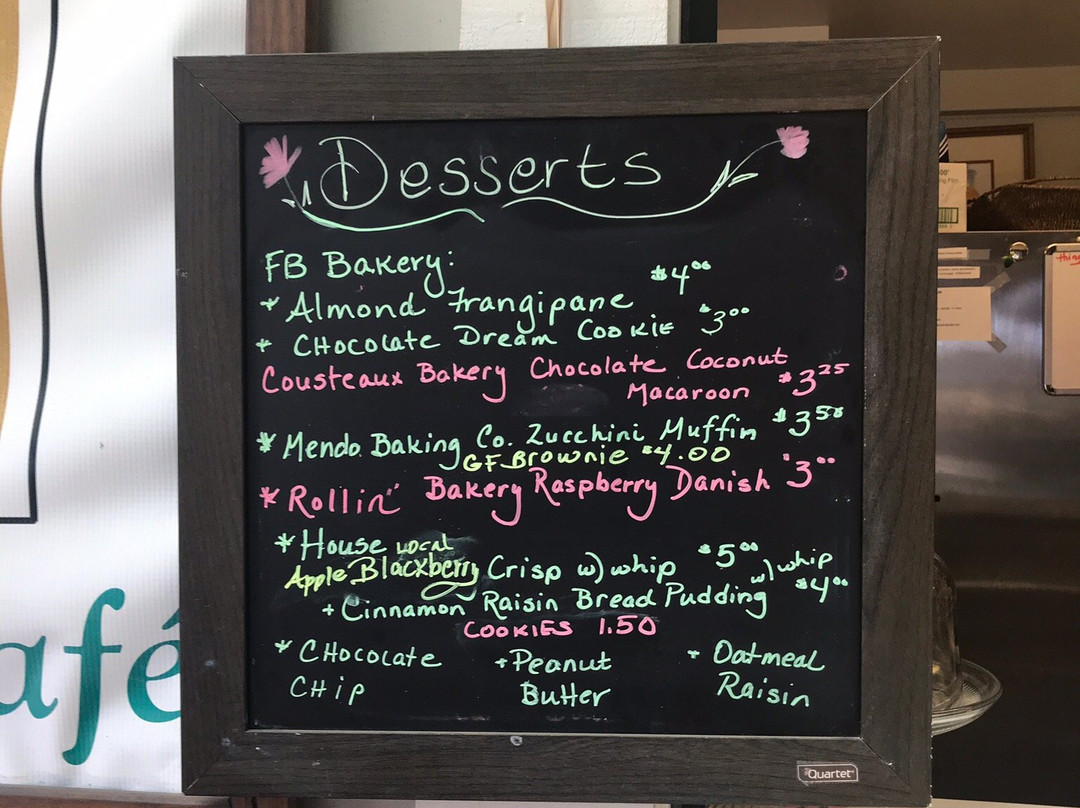 Desserts
FB Bakery:
* Almond Frangipane $4.00
* Chocolate Dream Cookie $3.00
Cousteaux Bakery Chocolate Coconut
Macaroon $3.25
* Mendo Baking Co. Zucchini Muffin $3.50
GF Brownie $4.00
* Rollin' Bakery Raspberry Danish $3.00
* House LOCAL
Apple Blackberry Crisp w/ whip $5.00
+ Cinnamon Raisin Bread Pudding w/ whip $4.00
COOKIES 1.50
* CHocolate + Peanut + Oatmeal
CHip Butter Raisin
Quartet
afé